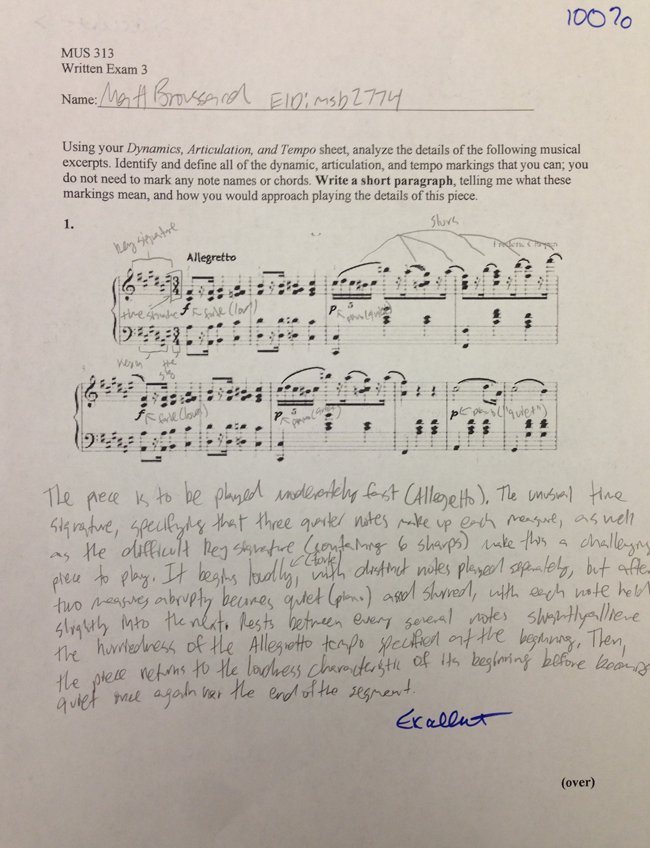 100%
MUS 313
Written Exam 3
Name: Matt Broussard EID: msb2774
Using your Dynamics, Articulation, and Tempo sheet, analyze the details of the following musical
excerpts. Identify and define all of the dynamic, articulation, and tempo markings that you can; you
do not need to mark any note names or chords. Write a short paragraph, telling me what these
markings mean, and how you would approach playing the details of this piece.
1.
slurs
key signature
Allegretto
3
4
time signature
f ← forte (loud)
p ← piano (quiet)
5
3
4
f ← forte (loud)
p ← piano (quiet)
5
p ← piano ("quiet")
The piece is to be played moderately fast (Allegretto). The unusual time
signature, specifying that three quarter notes make up each measure, as well
as the difficult key signature (containing 6 sharps) make this a challenging
piece to play. It begins loudly, (forte) with distinct notes played separately, but after
two measures abruptly becomes quiet (piano) and slurred, with each note held
slightly into the next. Rests between every several notes slightly
the hurriedness of the Allegretto tempo specified at the beginning. Then,
the piece returns to the loudness characteristic of its beginning before becoming
quiet once again near the end of the segment.
Excellent
(over)